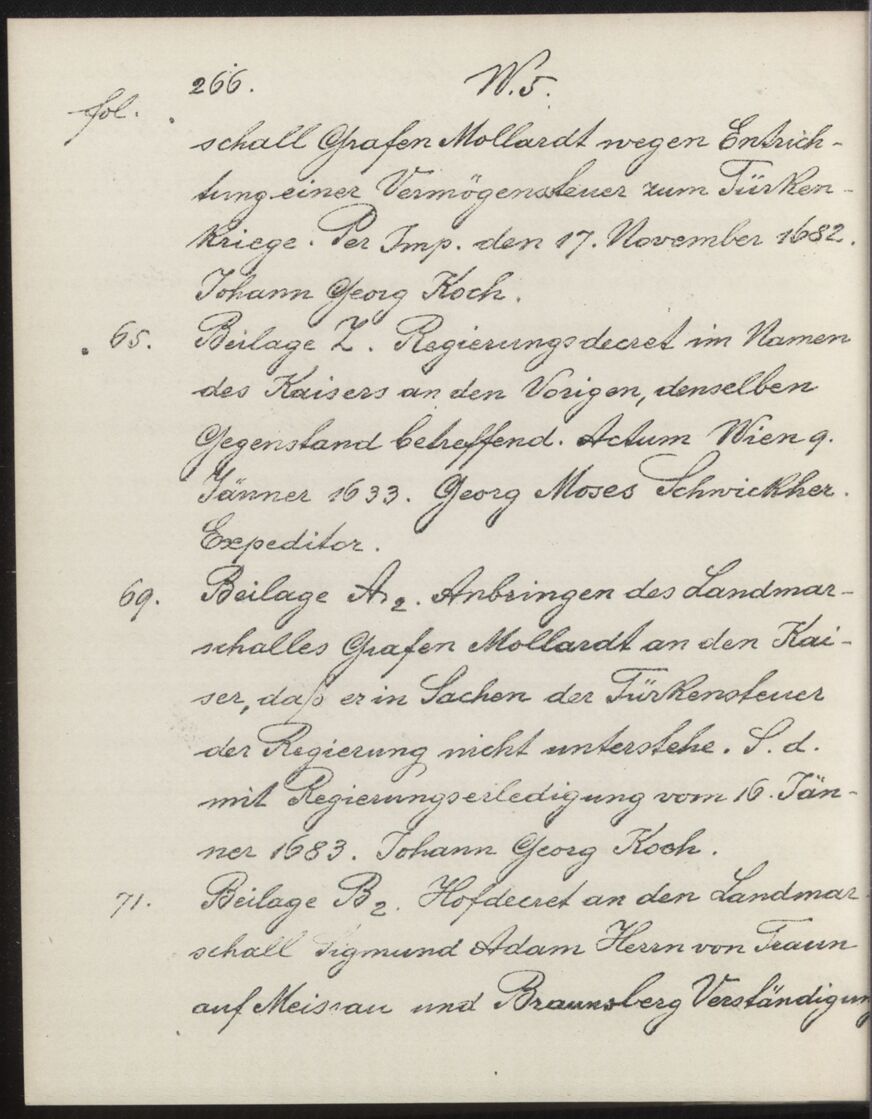 266. W. 5.
fol.
schall Grafen Mollardt wegen Entrich-
tung einer Vermögenssteuer zum Türken-
kriege. Per Imp. den 17. November 1682.
Johann Georg Koch.
65. Beilage Z. Regierungsdecret im Namen
des Kaisers an den Vorigen, denselben
Gegenstand betreffend. Actum Wien 9.
Jänner 1633. Georg Moses Schwickher.
Expeditor.
69. Beilage A2. Anbringen des Landmar-
schalles Grafen Mollardt an den Kai-
ser, daß er in Sachen der Türkensteuer
der Regierung nicht unterstehe. S. d.
mit Regierungserledigung vom 16. Jän-
ner 1683. Johann Georg Koch.
71. Beilage B2. Hofdecret an den Landmar-
schall Sigmund Adam Herrn von Traun
auf Meissau und Braunsberg Verständigun